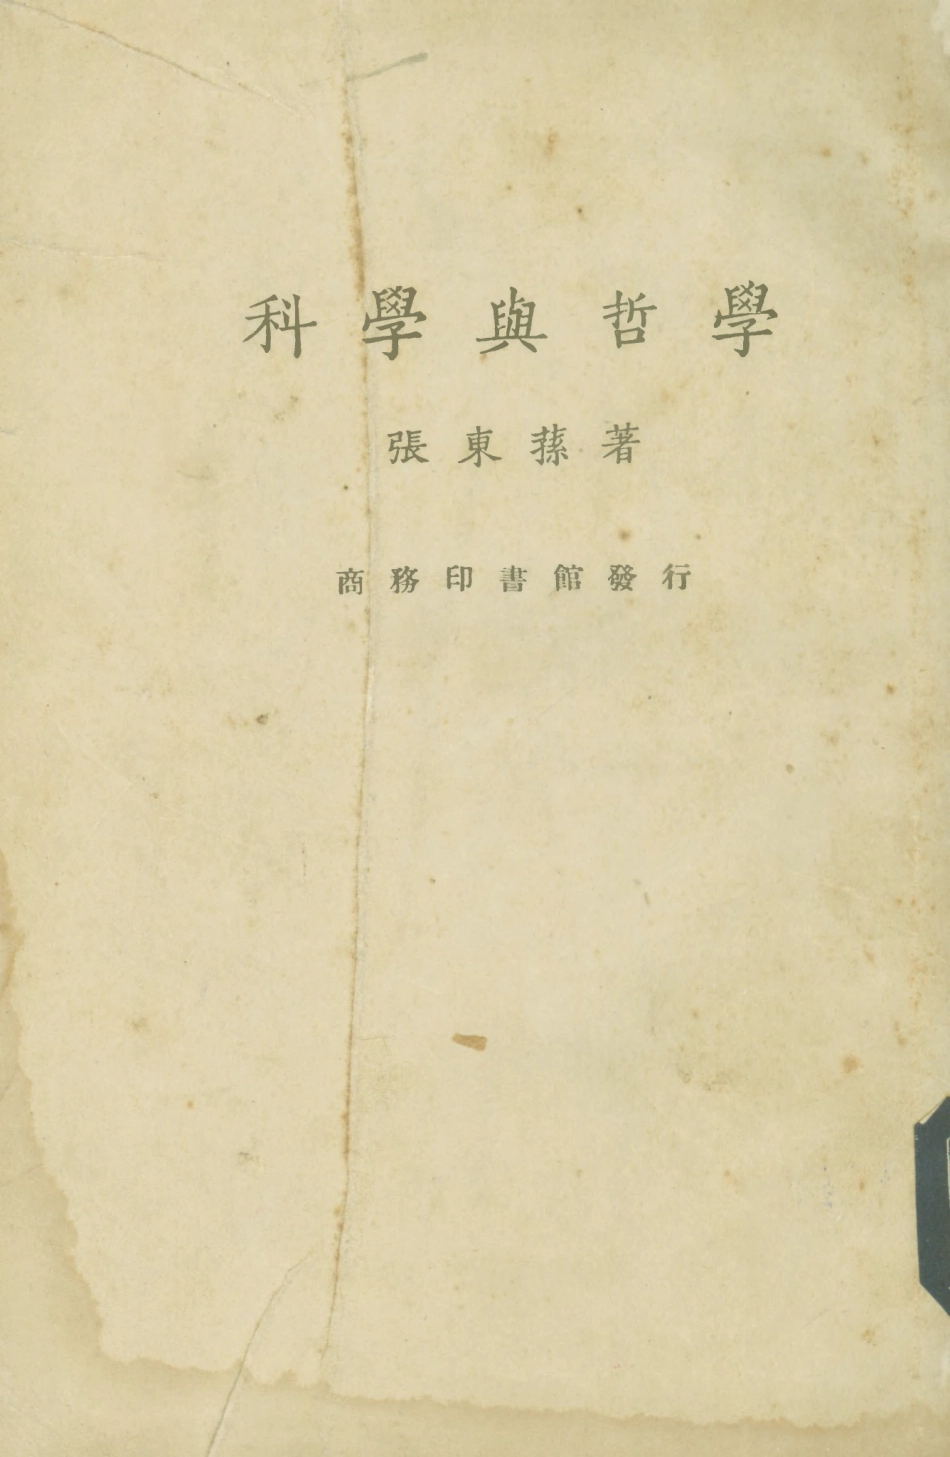 科學與哲學
張東蓀著
商務印書館發行